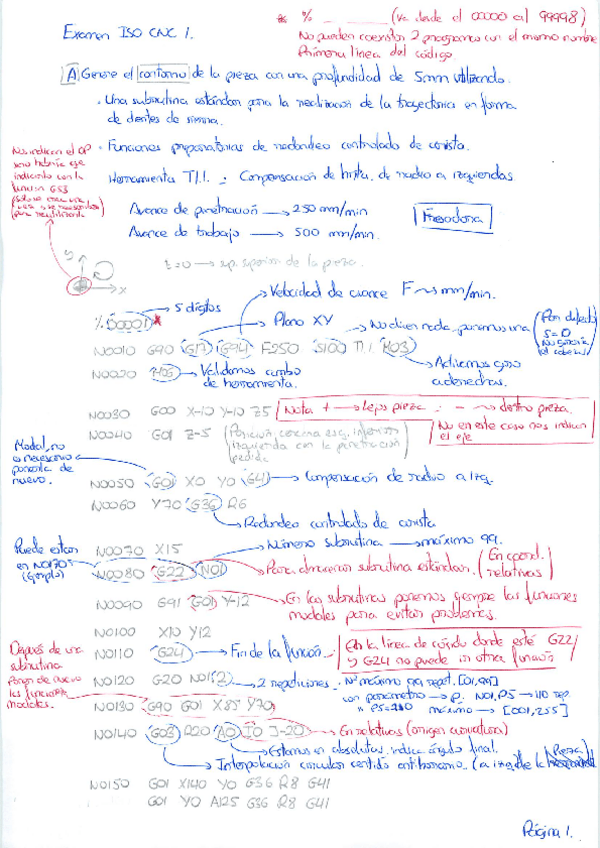 Examen ISO CNC 1.
* % _ _ _ _ _ (Va desde el 00000 al 99998)
No pueden coexistir 2 programas con el mismo nombre
Primera línea del código.
A) Genere el contorno de la pieza con una profundidad de 5mm utilizando.
. Una subrutina estándar para la realización de la trayectoria en forma
de dientes de sierra.
. Funciones preparatorias de redondeo controlado de arista.
Herramientas T1.1. : Compensación de hrta. de radio a izquierdas.
No indican el OP
sino habría que
indicarlo con la
función G53
Avance de penetración → 250 mm/min
Avance de trabajo → 500 mm/min.
Fresadora
z=0 → sup. superior de la pieza.
y
x
5 dígitos
Velocidad de avance F → mm/min.
% 00001 *
Plano XY
No dicen nada, ponemos una
(Por defecto
S=0
N0010 G90 G17 G94 F250 S100 T1.1 M03
N0020 M06 → Validamos cambio
de herramienta.
Activamos giro
a derechas.
N0030 G00 X-10 Y-10 Z5
Nota + → lejos pieza ; - → dentro pieza.
No en este caso nos indican
el eje
N0040 G01 Z-5
(Posición cercana esq. inferior
izquierda con la penetración
pedida
Modal, no
es necesario
ponerla de
nuevo.
N0050 G01 X0 Y0 G41 → Compensación de radio a izq.
N0060 Y70 G36 R6
Redondeo controlado de arista
N0070 X15
Número subrutina → máximo 99.
Puede estar
en N0170
(Ejemplo)
N0080 G22 N01 → Para almacenar subrutina estándar. (En coord.
relativas)
N0090 G91 G01 Y-12
En las subrutinas ponemos siempre las funciones
modales para evitar problemas.
N0100 X10 Y12
N0110 G24 → Fin de la función.
En la línea de código donde esté G22
y G24 no puede ir otra función
Después de una
subrutina
Pongo de nuevo
las funciones
modales.
N0120 G20 N01.2 → 2 repeticiones.
Nº máximo para repet. [01,99]
con parámetro → P. N01.P5 → 110 rep.
máximo → [001,255]
N0130 G90 G01 X85 Y70
N0140 G03 R20 A0 I0 J-20 → En relativas (origen curvatura)
Estamos en absolutas, indica ángulo final.
Interpolación circular sentido antihorario. (a izq. de la Pieza)
N0150 G01 X140 Y0 G36 R8 G41
G01 Y0 A125 G36 R8 G41
Página 1.